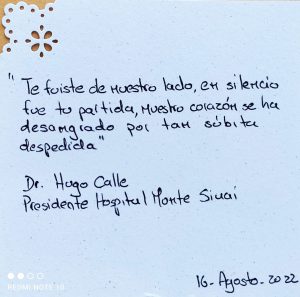 "Te fuiste de nuestro lado, en silencio
fue tu partida, nuestro corazón se ha
desangrado por tan súbita
despedida"
Dr. Hugo Calle
Presidente Hospital Monte Sinaí
16-Agosto-2022
REDMI NOTE 10